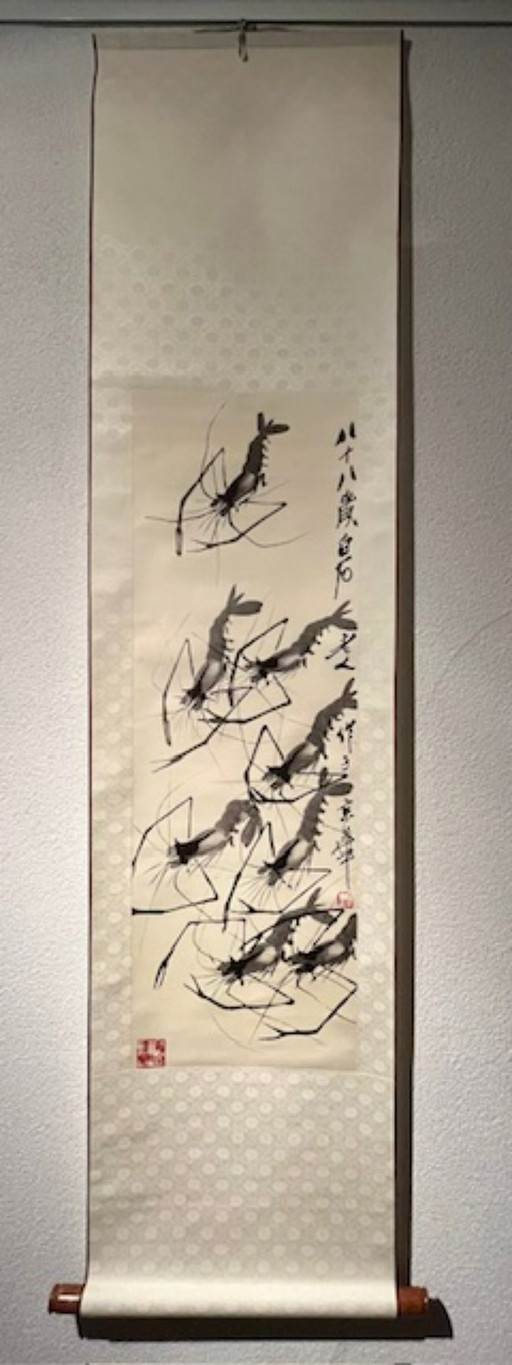 八十八歲白石老人作于京華